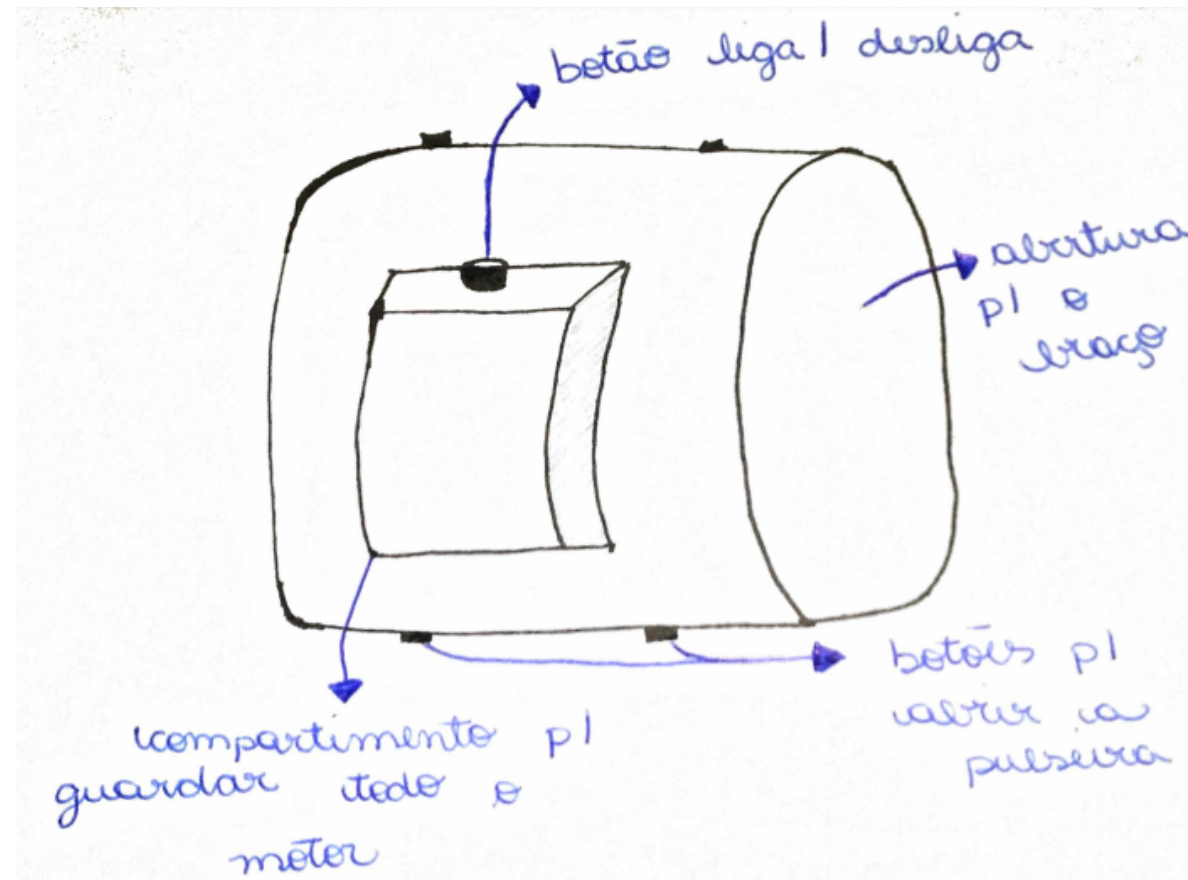 botão liga / desliga
abertura
p/ o
braço
botões p/
abrir a
pulseira
compartimento p/
guardar todo o
motor